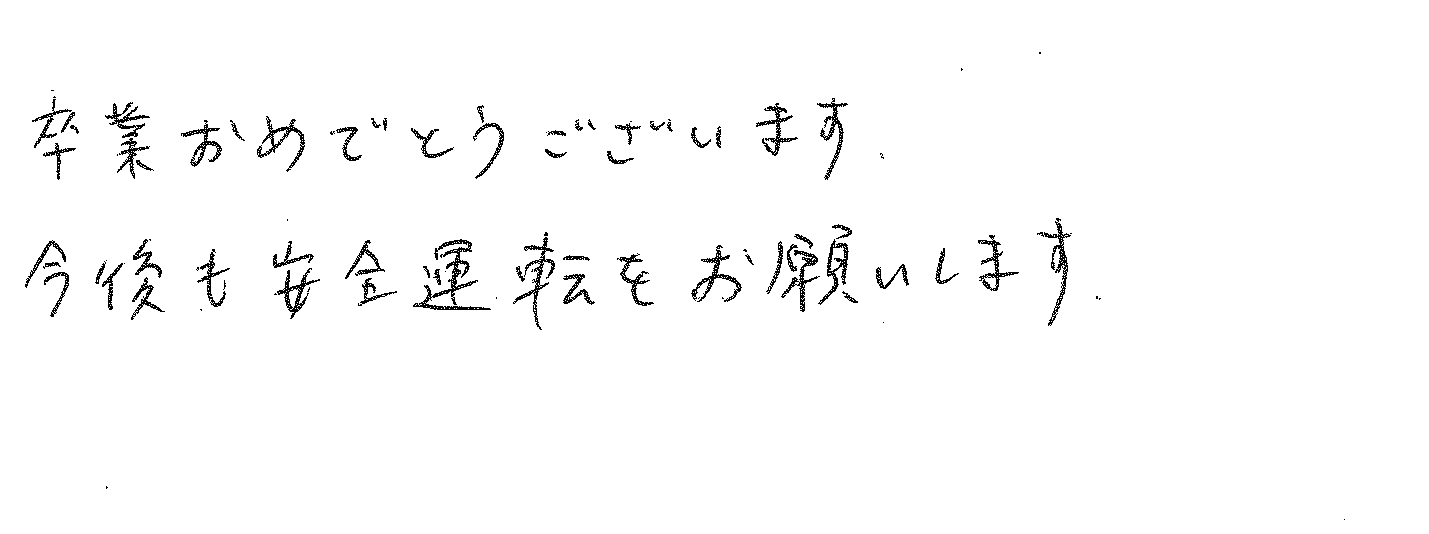 卒業おめでとうございます.
今後も安全運転をお願いします.